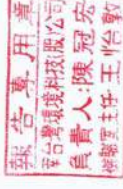 報告專用章
台灣環境科技(股)公司
負責人:陳冠宏
檢驗室主任:王怡敏